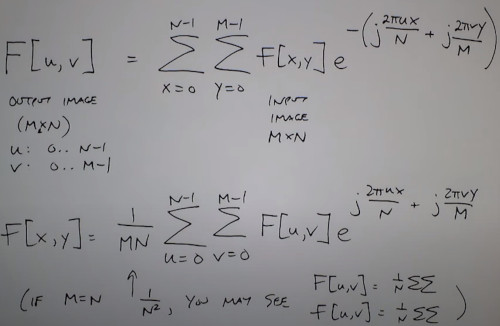 F[u,v] = Σ_{x=0}^{N-1} Σ_{y=0}^{M-1} F[x,y] e^{-(j 2πux/N + j 2πvy/M)}
OUTPUT IMAGE
(M×N)
u: 0.. N-1
v: 0.. M-1
INPUT
IMAGE
M×N
F[x,y] = 1/MN Σ_{u=0}^{N-1} Σ_{v=0}^{M-1} F[u,v] e^{j 2πux/N + j 2πvy/M}
(IF M=N ↑ 1/N², YOU MAY SEE F[u,v] = 1/N ΣΣ
f[u,v] = 1/N ΣΣ)